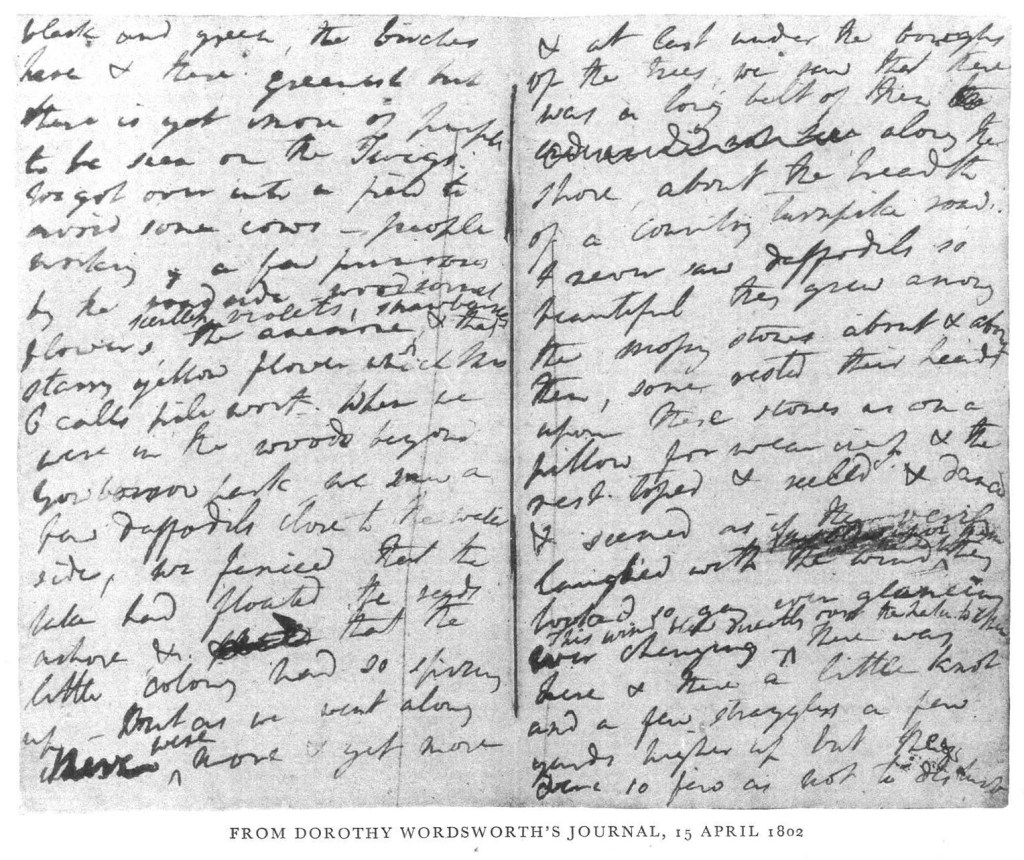 black and green, the birches
here & there greenish but
there is yet more of purple
to be seen on the Twigs.
We got over into a field to
avoid some cows — people
working, a few primroses
by the road side, wood sorrel
flowers, the anemone, scentless violets, strawberries, & that
starry yellow flower which Mrs
C calls pile wort. When we
were in the woods beyond
Gowbarrow park we saw a
few daffodils close to the water
side, we fancied that the
lake had floated the seeds
ashore & that the
little colony had so sprung
up — But as we went along
there were more & yet more
& at last under the boughs
of the trees, we saw that there
was a long belt of them
along the
shore, about the breadth
of a country turnpike road.
I never saw daffodils so
beautiful they grew among
the mossy stones about & about
them, some rested their heads
upon these stones as on a
pillow for weariness & the
rest tossed & reeled & danced
& seemed as if they verily
laughed with the wind they
looked so gay ever glancing
ever changing. This wind blew directly over the lake to them. There was
here & there a little knot
and a few stragglers a few
yards higher up but they
were so few as not to disturb
FROM DOROTHY WORDSWORTH'S JOURNAL, 15 APRIL 1802